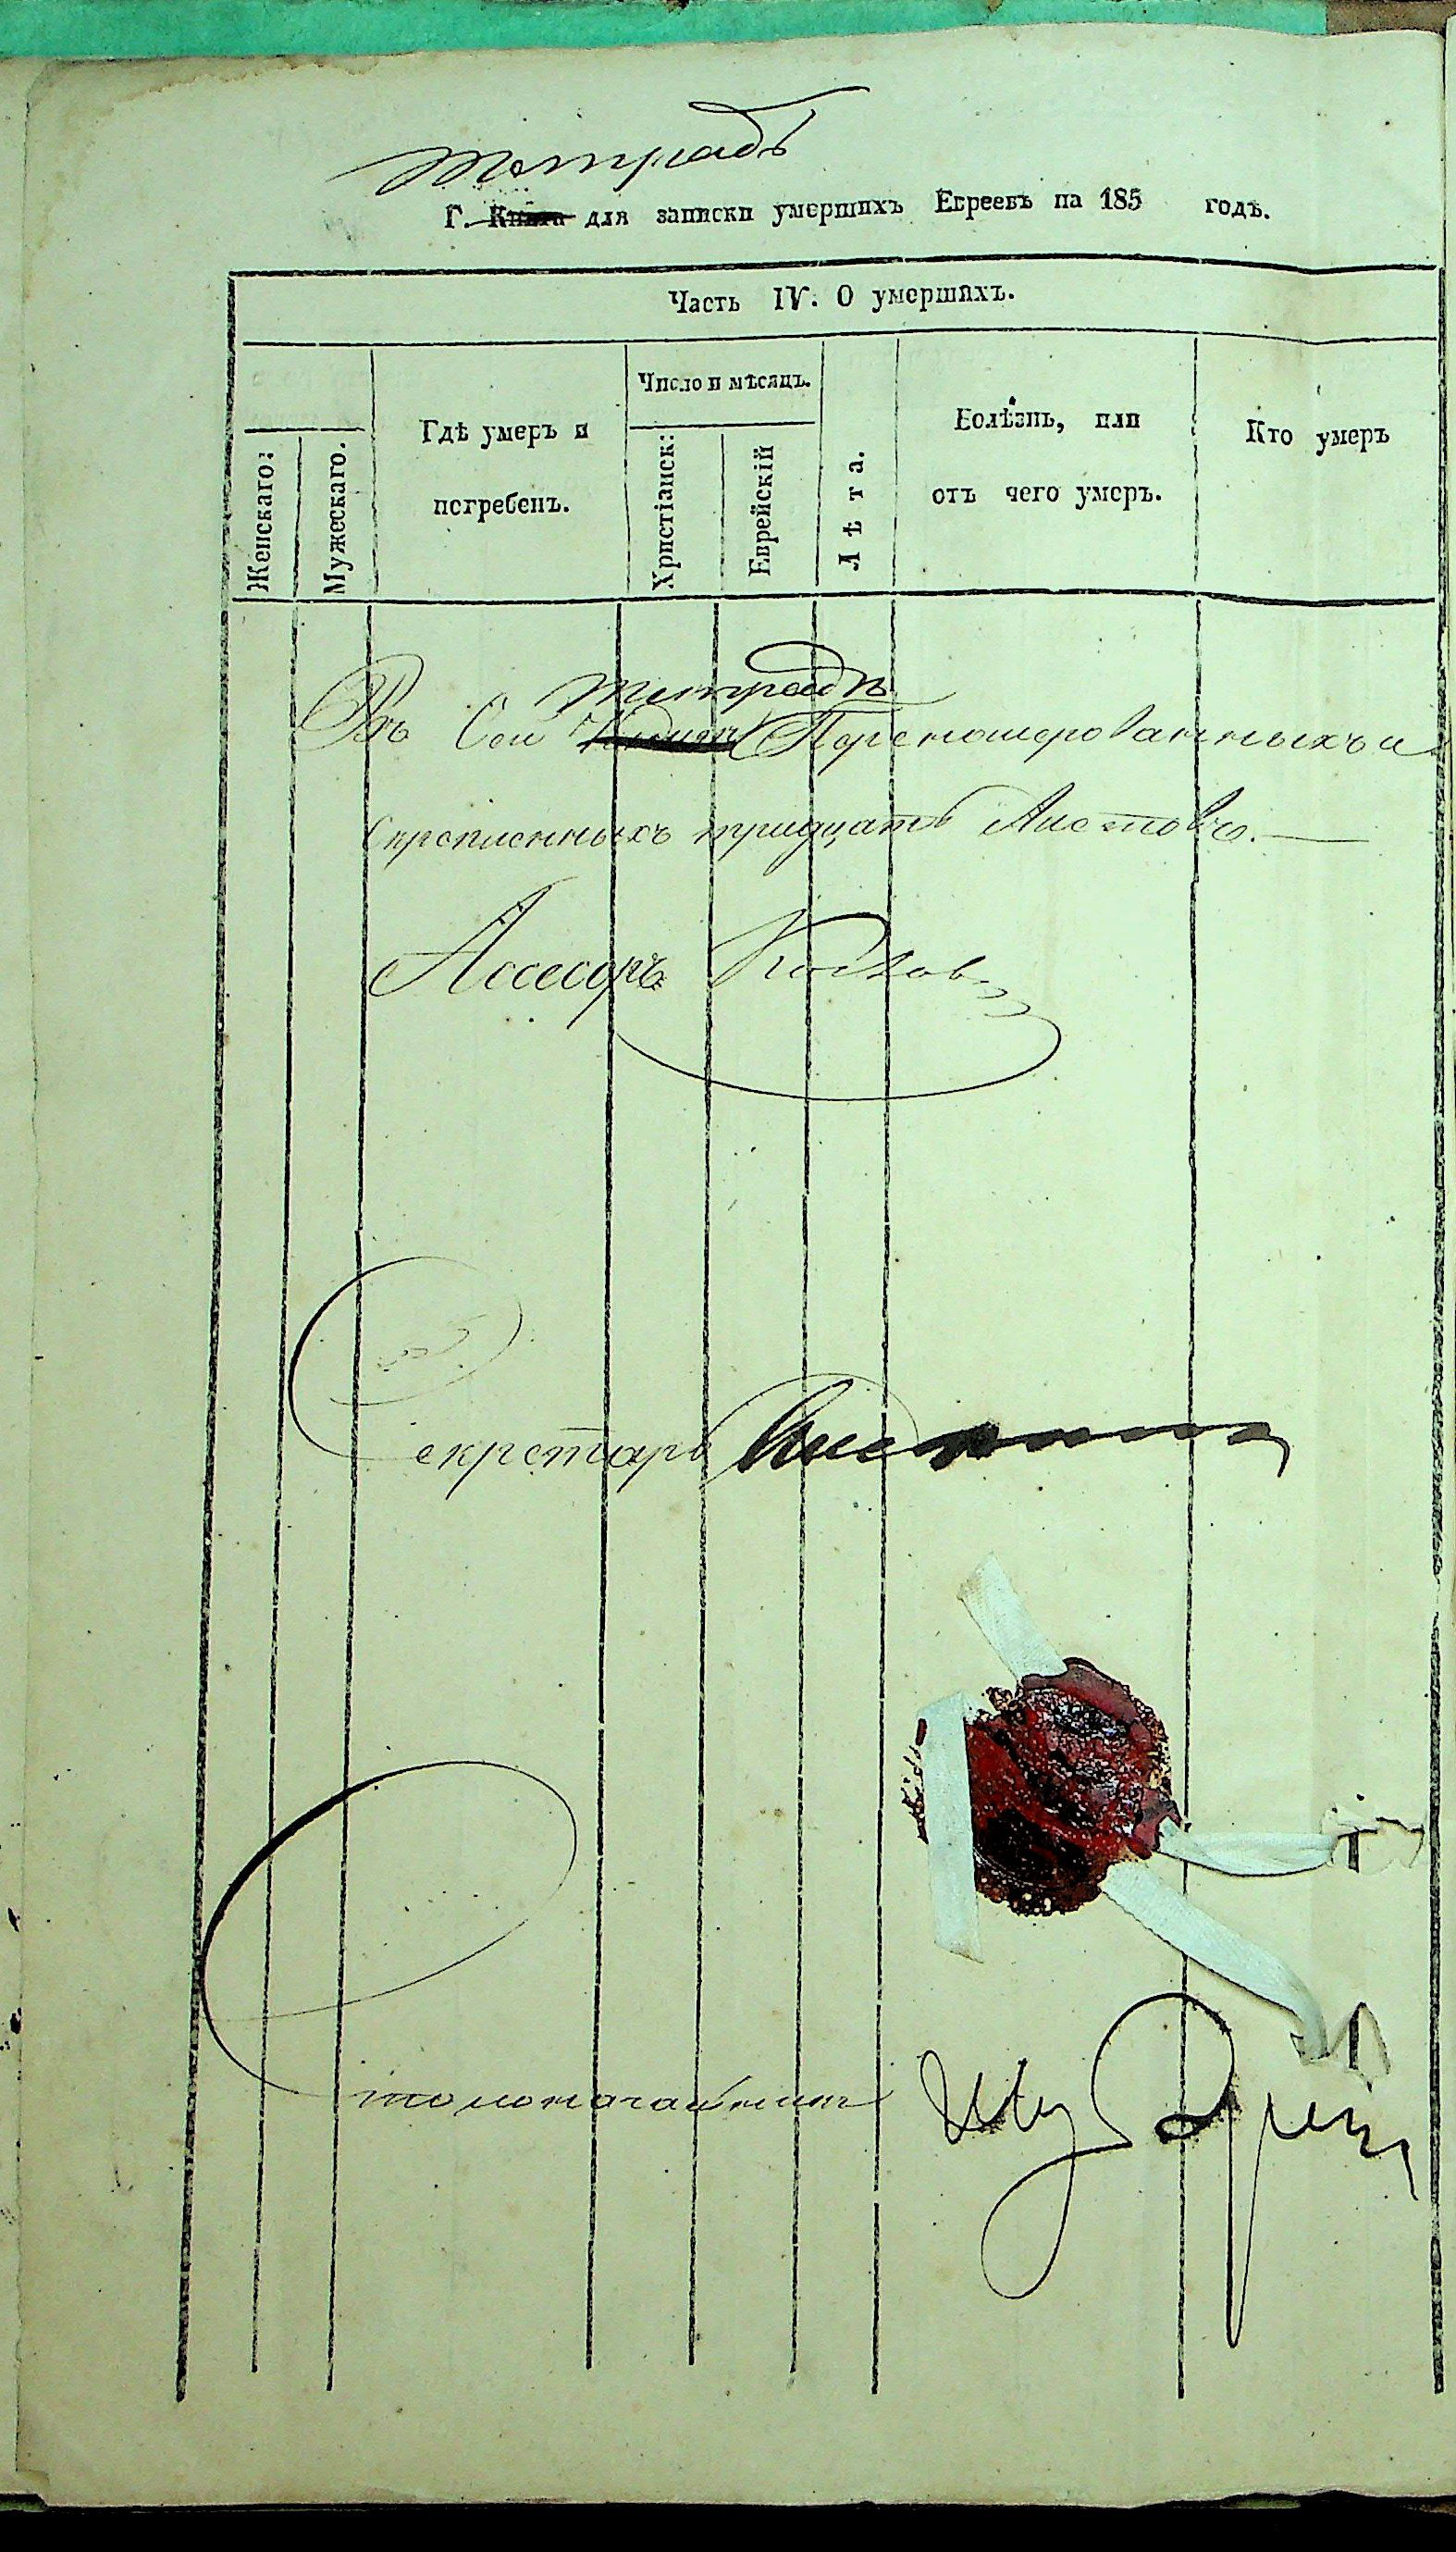 Тетрадь
Г. Книга для записки умершихъ Евреевъ на 185 годъ.
Часть IV. О умершихъ.
Женскаго:
Мужескаго.
Гдѣ умеръ и
погребенъ.
Число и мѣсяцъ.
Христіанск:
Еврейскій
Лѣта.
Болѣзнь, или
отъ чего умеръ.
Кто умеръ
тетрадѣ
Въ Сей Книгѣ Переномерованныхъ и
Скрепленныхъ тридцать Листовъ.
Ассесоръ
Секретарь
Столоначальникъ